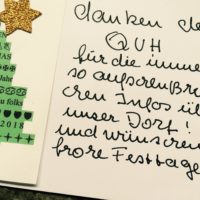 danken de
QUH
für die imme
so außerenßre
cren Infos ü
unser Dorf!
und wünschen
frohe Festtage
AS
Jahr
u folks
2018